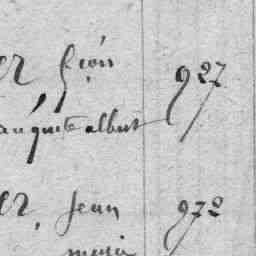 er Léon 927
auguste albert
er, Jean 972
marie